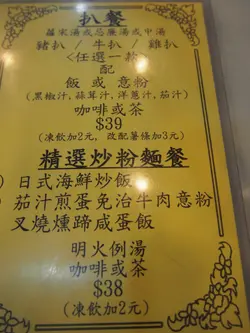 扒餐
羅宋湯或忌廉湯或中湯
豬扒 / 牛扒 / 雞扒
<任選一款>
配
飯 或 意粉
(黑椒汁,蒜茸汁,洋葱汁,茄汁)
咖啡或茶
$39
(凍飲加2元,改配薯條加3元)
精選炒粉麵餐
) 日式海鮮炒飯
) 茄汁煎蛋免治牛肉意粉
叉燒燻蹄咸蛋飯
明火例湯
咖啡或茶
$38
(凍飲加2元)